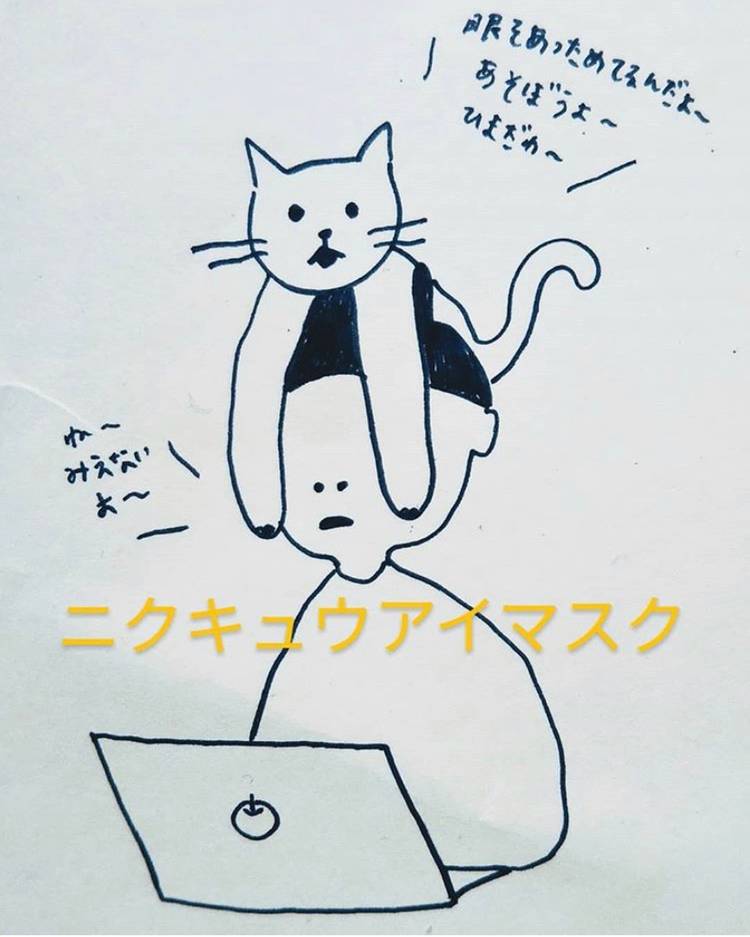 眼をあっためてるんだよ〜
あそぼうよ〜
ひまだわ〜
ね〜
みえない
よ〜
ニクキュウアイマスク